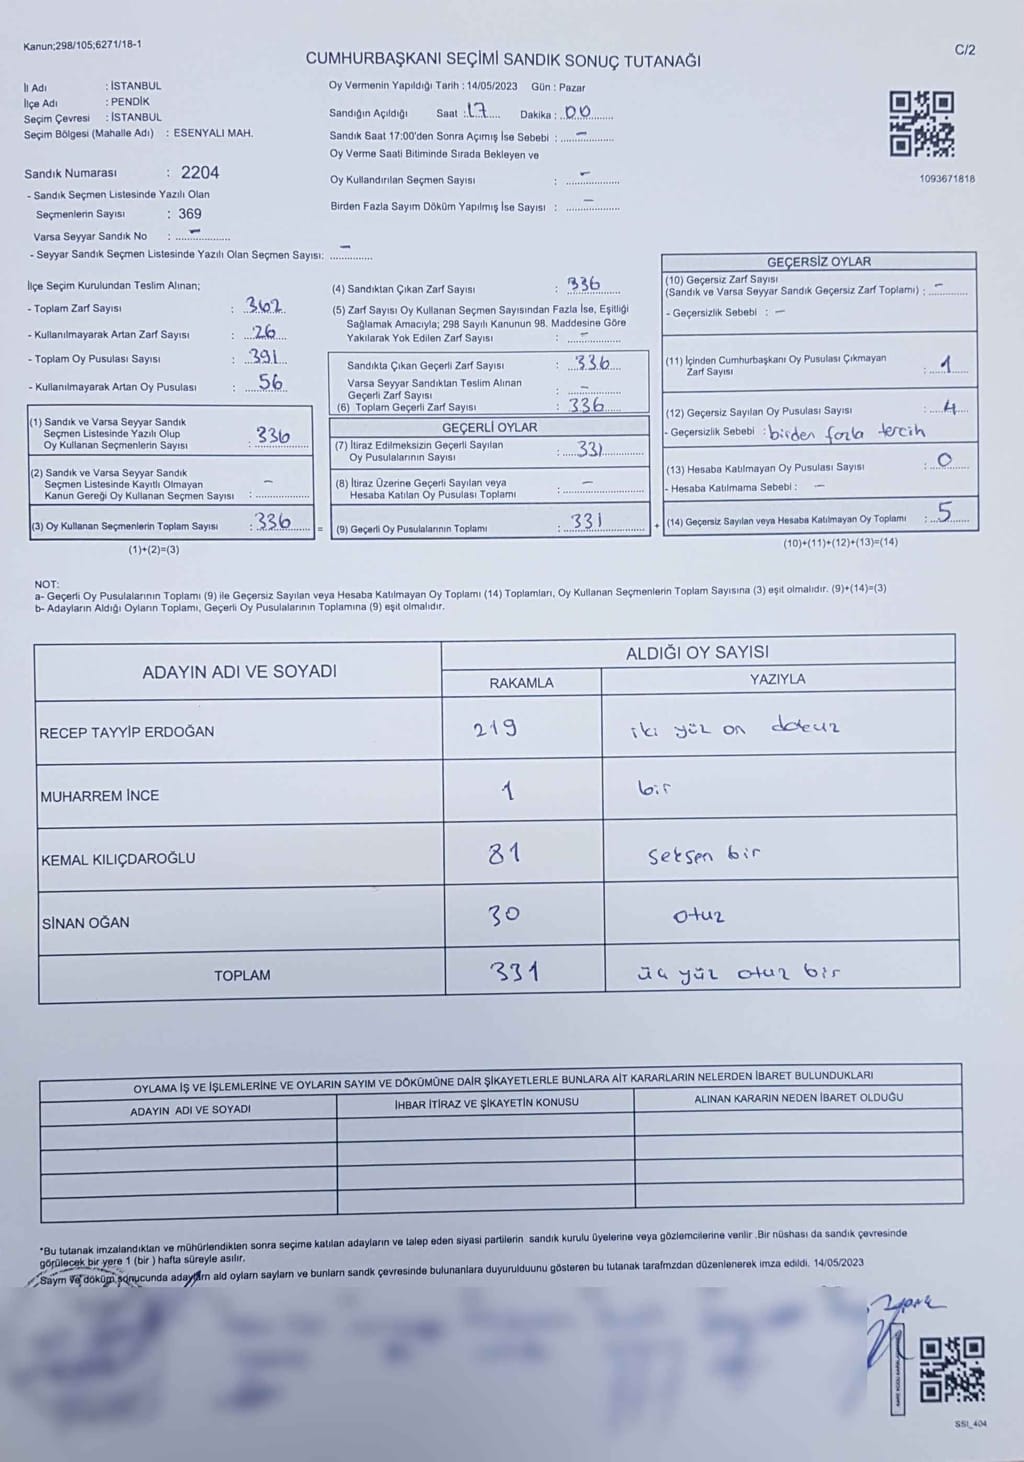 Kanun;298/105;6271/18-1
C/2
CUMHURBAŞKANI SEÇİMİ SANDIK SONUÇ TUTANAĞI
İl Adı : İSTANBUL
İlçe Adı : PENDİK
Seçim Çevresi : İSTANBUL
Seçim Bölgesi (Mahalle Adı) : ESENYALI MAH.
Oy Vermenin Yapıldığı Tarih : 14/05/2023 Gün : Pazar
Sandığın Açıldığı Saat : 17 Dakika : 00
Sandık Saat 17:00'den Sonra Açımış İse Sebebi : -
Oy Verme Saati Bitiminde Sırada Bekleyen ve
Oy Kullandırılan Seçmen Sayısı : -
Birden Fazla Sayım Döküm Yapılmış İse Sayısı : -
1093671818
Sandık Numarası : 2204
- Sandık Seçmen Listesinde Yazılı Olan
Seçmenlerin Sayısı : 369
Varsa Seyyar Sandık No : -
- Seyyar Sandık Seçmen Listesinde Yazılı Olan Seçmen Sayısı: -
İlçe Seçim Kurulundan Teslim Alınan;
- Toplam Zarf Sayısı : 362
- Kullanılmayarak Artan Zarf Sayısı : 26
- Toplam Oy Pusulası Sayısı : 391
- Kullanılmayarak Artan Oy Pusulası : 56
(1) Sandık ve Varsa Seyyar Sandık
Seçmen Listesinde Yazılı Olup
Oy Kullanan Seçmenlerin Sayısı : 336
(2) Sandık ve Varsa Seyyar Sandık
Seçmen Listesinde Kayıtlı Olmayan
Kanun Gereği Oy Kullanan Seçmen Sayısı : -
(3) Oy Kullanan Seçmenlerin Toplam Sayısı : 336 =
(1)+(2)=(3)
(4) Sandıktan Çıkan Zarf Sayısı : 336
(5) Zarf Sayısı Oy Kullanan Seçmen Sayısından Fazla İse, Eşitliği
Sağlamak Amacıyla; 298 Sayılı Kanunun 98. Maddesine Göre
Yakılarak Yok Edilen Zarf Sayısı : -
Sandıkta Çıkan Geçerli Zarf Sayısı : 336
Varsa Seyyar Sandıktan Teslim Alınan
Geçerli Zarf Sayısı : -
(6) Toplam Geçerli Zarf Sayısı : 336
GEÇERLİ OYLAR
(7) İtiraz Edilmeksizin Geçerli Sayılan
Oy Pusulalarının Sayısı : 331
(8) İtiraz Üzerine Geçerli Sayılan veya
Hesaba Katılan Oy Pusulası Toplamı : -
(9) Geçerli Oy Pusulalarının Toplamı : 331 +
GEÇERSİZ OYLAR
(10) Geçersiz Zarf Sayısı
(Sandık ve Varsa Seyyar Sandık Geçersiz Zarf Toplamı) : -
- Geçersizlik Sebebi : -
(11) İçinden Cumhurbaşkanı Oy Pusulası Çıkmayan
Zarf Sayısı : 1
(12) Geçersiz Sayılan Oy Pusulası Sayısı : 4
- Geçersizlik Sebebi : birden fazla tercih
(13) Hesaba Katılmayan Oy Pusulası Sayısı : 0
- Hesaba Katılmama Sebebi : -
(14) Geçersiz Sayılan veya Hesaba Katılmayan Oy Toplamı : 5
(10)+(11)+(12)+(13)=(14)
NOT:
a- Geçerli Oy Pusulalarının Toplamı (9) ile Geçersiz Sayılan veya Hesaba Katılmayan Oy Toplamı (14) Toplamları, Oy Kullanan Seçmenlerin Toplam Sayısına (3) eşit olmalıdır. (9)+(14)=(3)
b- Adayların Aldığı Oyların Toplamı, Geçerli Oy Pusulalarının Toplamına (9) eşit olmalıdır.
ADAYIN ADI VE SOYADI
ALDIĞI OY SAYISI
RAKAMLA YAZIYLA
RECEP TAYYİP ERDOĞAN 219 iki yüz on dokuz
MUHARREM İNCE 1 bir
KEMAL KILIÇDAROĞLU 81 seksen bir
SİNAN OĞAN 30 otuz
TOPLAM 331 üç yüz otuz bir
OYLAMA İŞ VE İŞLEMLERİNE VE OYLARIN SAYIM VE DÖKÜMÜNE DAİR ŞİKAYETLERLE BUNLARA AİT KARARLARIN NELERDEN İBARET BULUNDUKLARI
ADAYIN ADI VE SOYADI İHBAR İTİRAZ VE ŞİKAYETİN KONUSU ALINAN KARARIN NEDEN İBARET OLDUĞU
*Bu tutanak imzalandıktan ve mühürlendikten sonra seçime katılan adayların ve talep eden siyasi partilerin sandık kurulu üyelerine veya gözlemcilerine verilir .Bir nüshası da sandık çevresinde
görülecek bir yere 1 (bir ) hafta süreyle asılır.
Saym ve döküm sonucunda adaylarn ald oylarn saylarn ve bunlarn sandk çevresinde bulunanlara duyurulduunu gösteren bu tutanak tarafmzdan düzenlenerek imza edildi. 14/05/2023
SSI_404